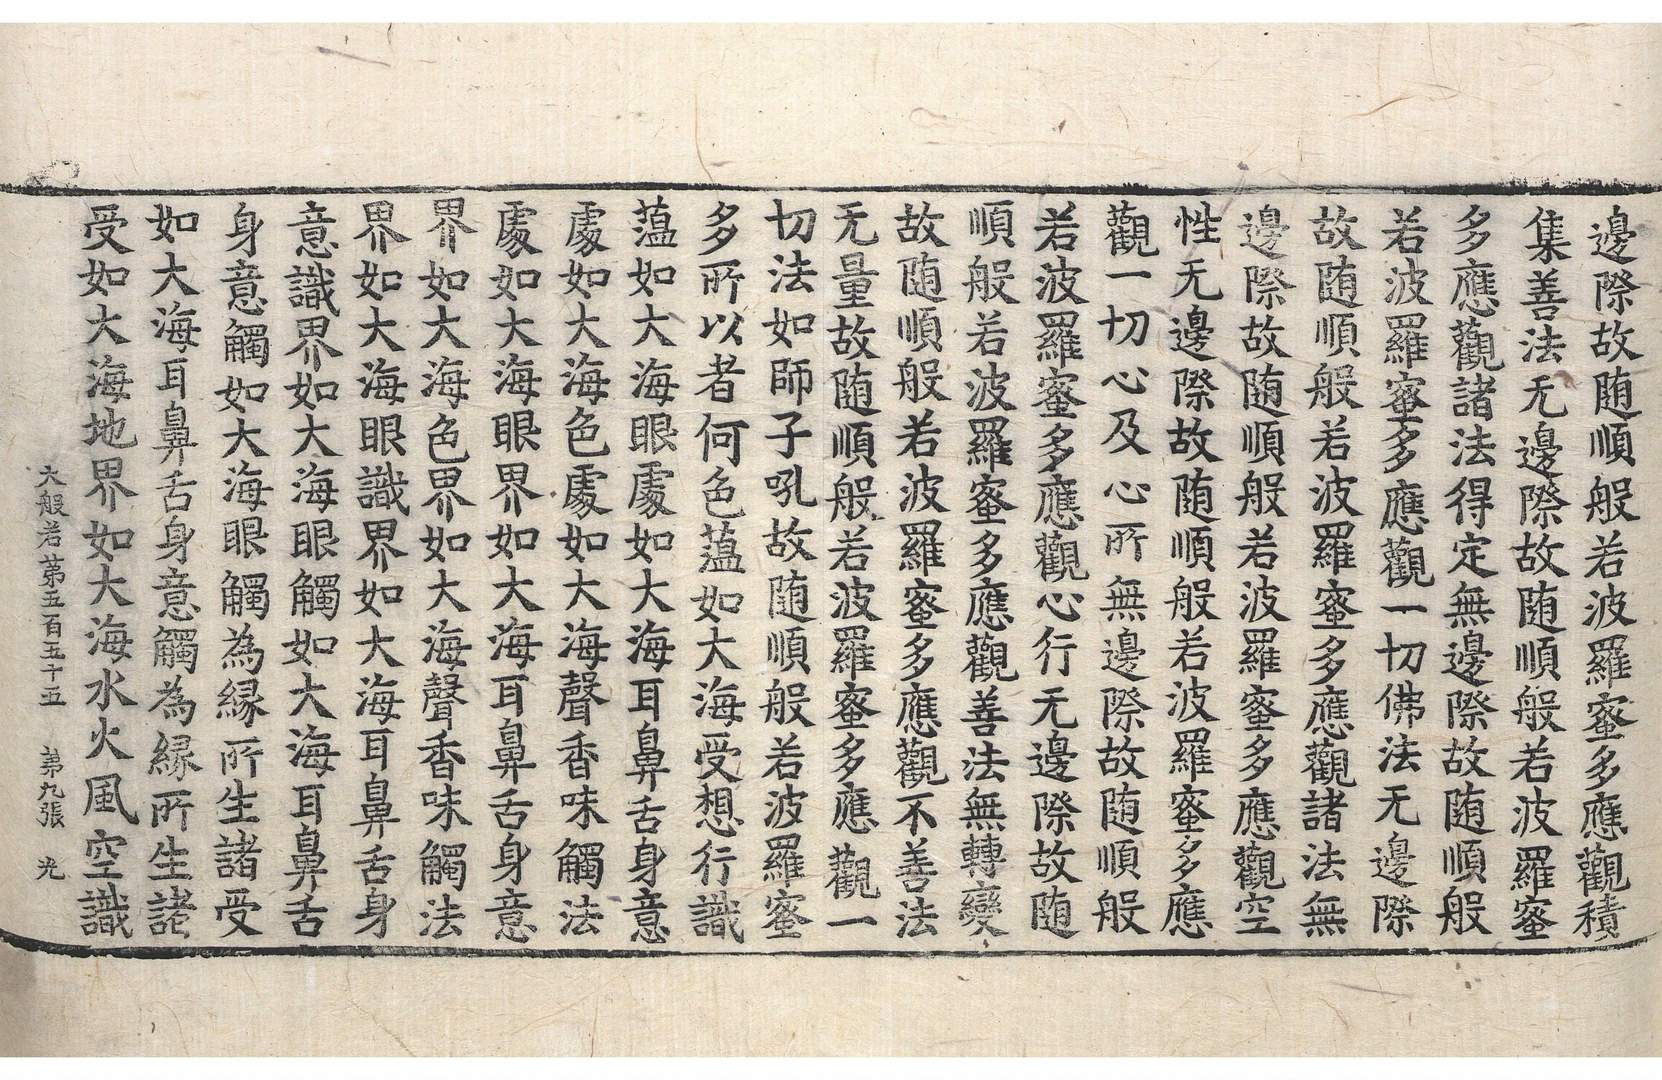 邊際故随順般若波羅蜜多應觀積
集善法无邊際故随順般若波羅蜜
多應觀諸法得定無邊際故随順般
若波羅蜜多應觀一切佛法无邊際
故随順般若波羅蜜多應觀諸法無
邊際故随順般若波羅蜜多應觀空
性无邊際故随順般若波羅蜜多應
觀一切心及心所無邊際故随順般
若波羅蜜多應觀心行无邊際故随
順般若波羅蜜多應觀善法無轉變
故随順般若波羅蜜多應觀不善法
无量故随順般若波羅蜜多應觀一
切法如師子吼故随順般若波羅蜜
多所以者何色薀如大海受想行識
薀如大海眼處如大海耳鼻舌身意
處如大海色處如大海聲香味觸法
處如大海眼界如大海耳鼻舌身意
界如大海色界如大海聲香味觸法
界如大海眼識界如大海耳鼻舌身
意識界如大海眼觸如大海耳鼻舌
身意觸如大海眼觸為縁所生諸受
如大海耳鼻舌身意觸為縁所生諸
受如大海地界如大海水火風空識
大般若第五百五十五 第九張 光